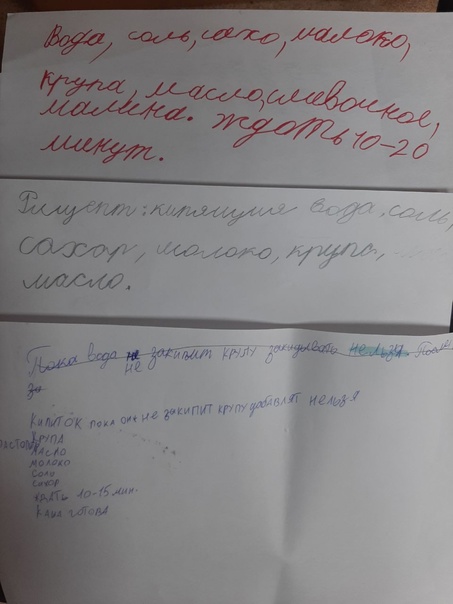 Вода, соль, сахо, малоко,
крупа, масло,сливочное,
малина. ждать 10-20
минут.
Рицепт: кипящия вода, соль,
сахар, молоко, крупа,
масло.
Пока вода не закипит крупу закидывать нельзя
за
КИПИТОК пока он не закипит крупу добавлят нельзя
КРУПА
МАСЛО
МОЛОКО
СОЛЬ
САХОР
ЖДАТЬ 10-15 мин.
КАША ГОТОВА